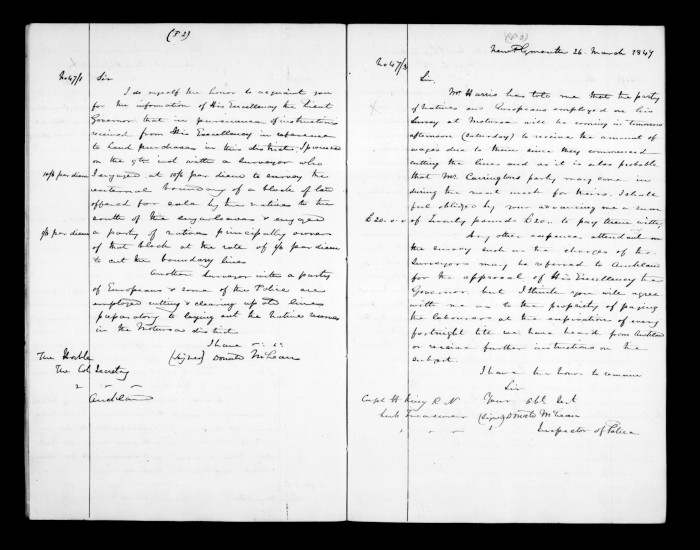 (82)
No 47/1 Sir
I do myself the honor to acquaint you
for the information of His Excellency the Lieut
Governor that in pursuance of instructions
received from His Excellency in reference
to land purchases in this district, I proceeded
on the 9th inst with a Surveyor who
10/6 per diem I engaged at 10/6 per diem to survey the
external boundary of a block of land
offered for sale by the natives to the
south of the sugarloaves & engaged
per diem a party of natives principally owners
of that block at the rate of per diem
to cut the boundary lines
Another Surveyor with a party
of Europeans & some of the Police are
employed cutting & clearing up old lines
preparatory to laying out the Native reserves
in the district
I have
(Signed) Donald McLean
The Honble
The Col Secretary
Auckland
New Plymouth 26 March 1847
No 47/3
Sir
Mr Harris has told me that the party
of natives and Europeans employed on his
Survey at will be coming in tomorrow
afternoon (Saturday) to receive the amount of
wages due to them since they commenced
cutting the lines and as it is also probable
that Mr Carringtons party may come in
during the next week for theirs. I shall
feel obliged by your advancing me a sum
£20.0.0 of Twenty pounds £20 to pay them with
Any other expenses attendant on
the survey such as the charges of the
Surveyors may be referred to Auckland
for the approval of His Excellency the
Governor but I think you will agree
with me as to the propriety of paying
the labourers at the expiration of every
fortnight till we have heard from Auckland
or receive further instructions on the
subject.
I have the honor to remain
Sir
Capt H. King R N Your Obt Sert
Sub Treasurer (Signed) Donald McLean
Inspector of Police